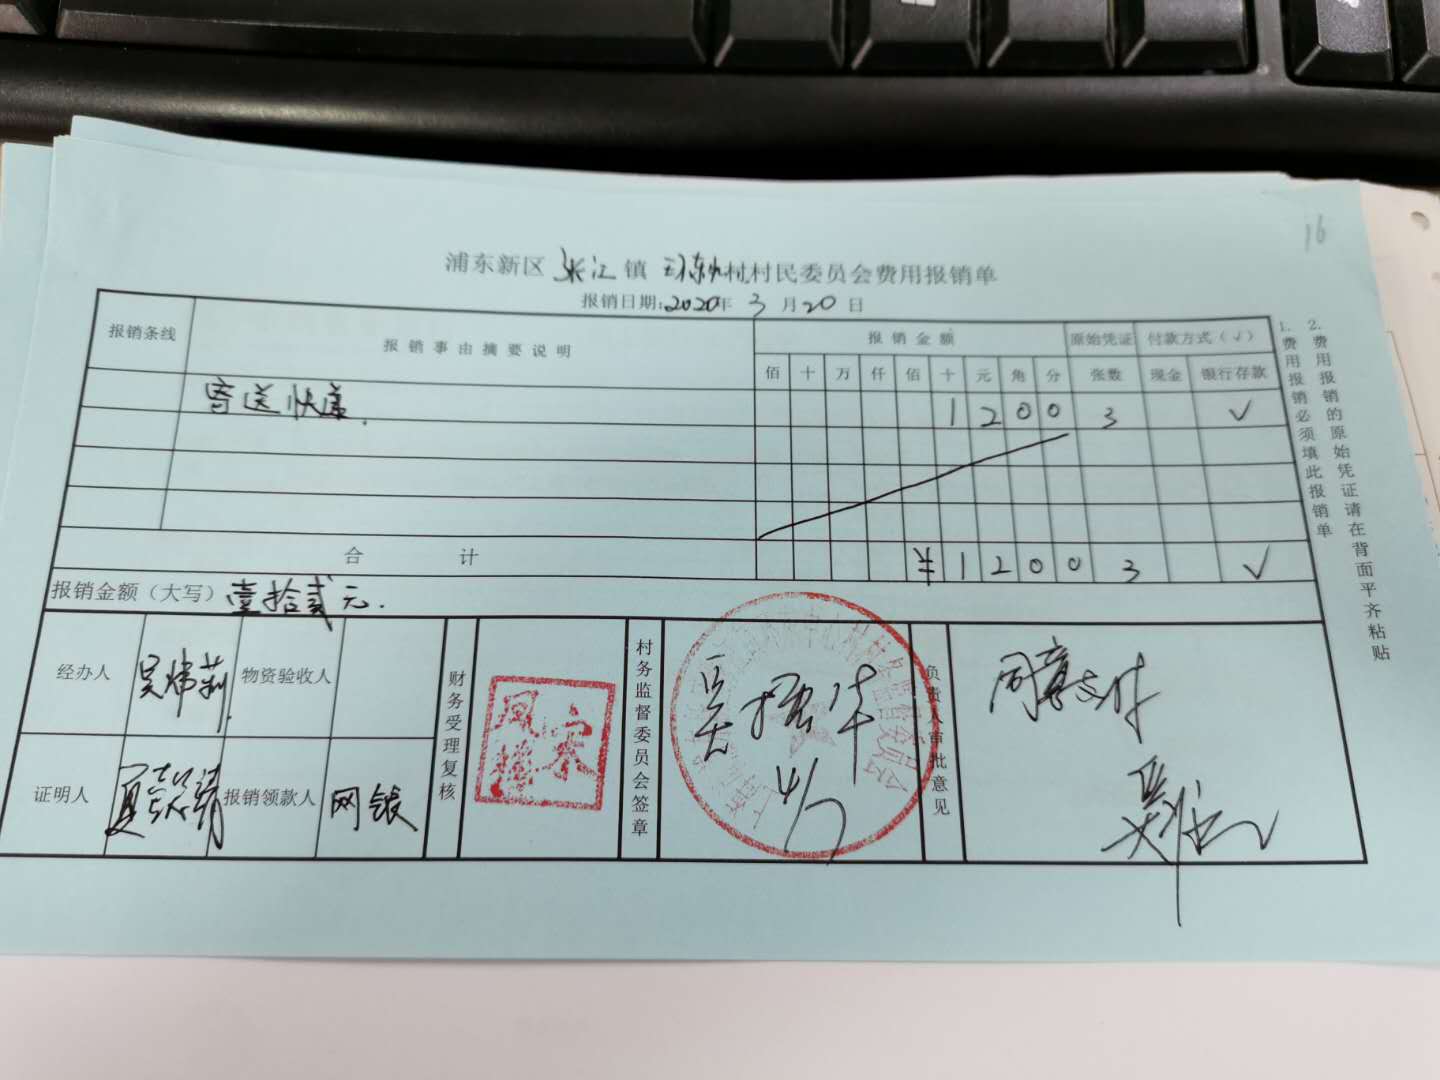 16
浦东新区 张江 镇 环东中心村村民委员会费用报销单
报销日期:2020年 3 月 20 日
报销条线 报销事由摘要说明 报销金额 原始凭证 付款方式(√)
佰 十 万 仟 佰 十 元 角 分 张数 现金 银行存款
寄送快递. 1 2 0 0 3 √
合 计 ¥ 1 2 0 0 3 √
报销金额(大写) 壹拾贰元.
经办人 物资验收人
证明人 报销领款人 网银
财务受理复核
宋凤
村务监督委员会签章
吴振华
4/7
负责人审批意见
同意支付
1.费用报销必须填此报销单
2.费用报销的原始凭证请在背面平齐粘贴